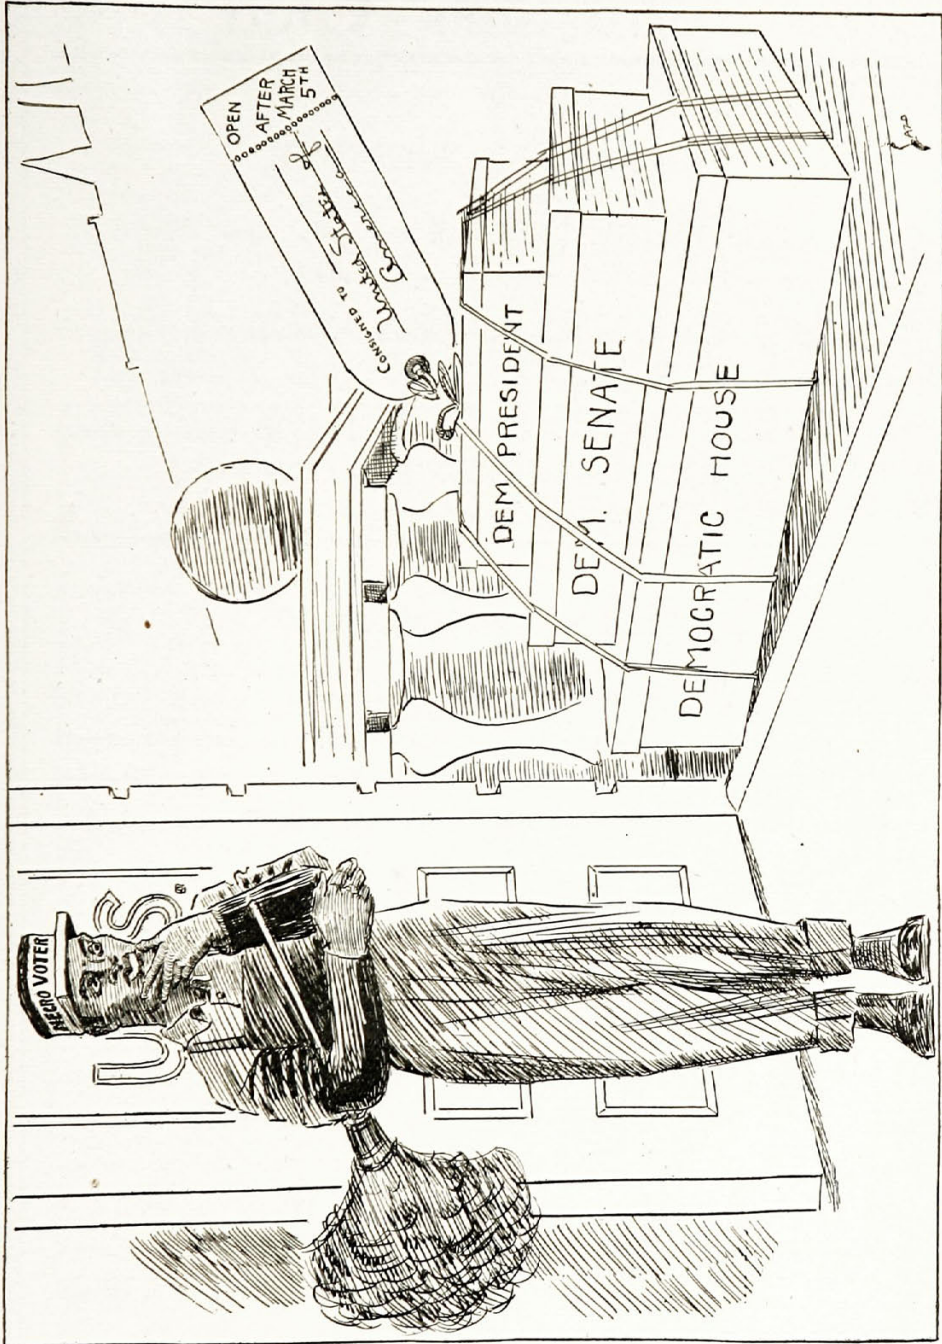 NEGRO VOTER
U S.
OPEN
AFTER
MARCH
5TH
CONSIGNED TO
United States
America
DEM PRESIDENT
DEM. SENATE
DEMOCRATIC HOUSE